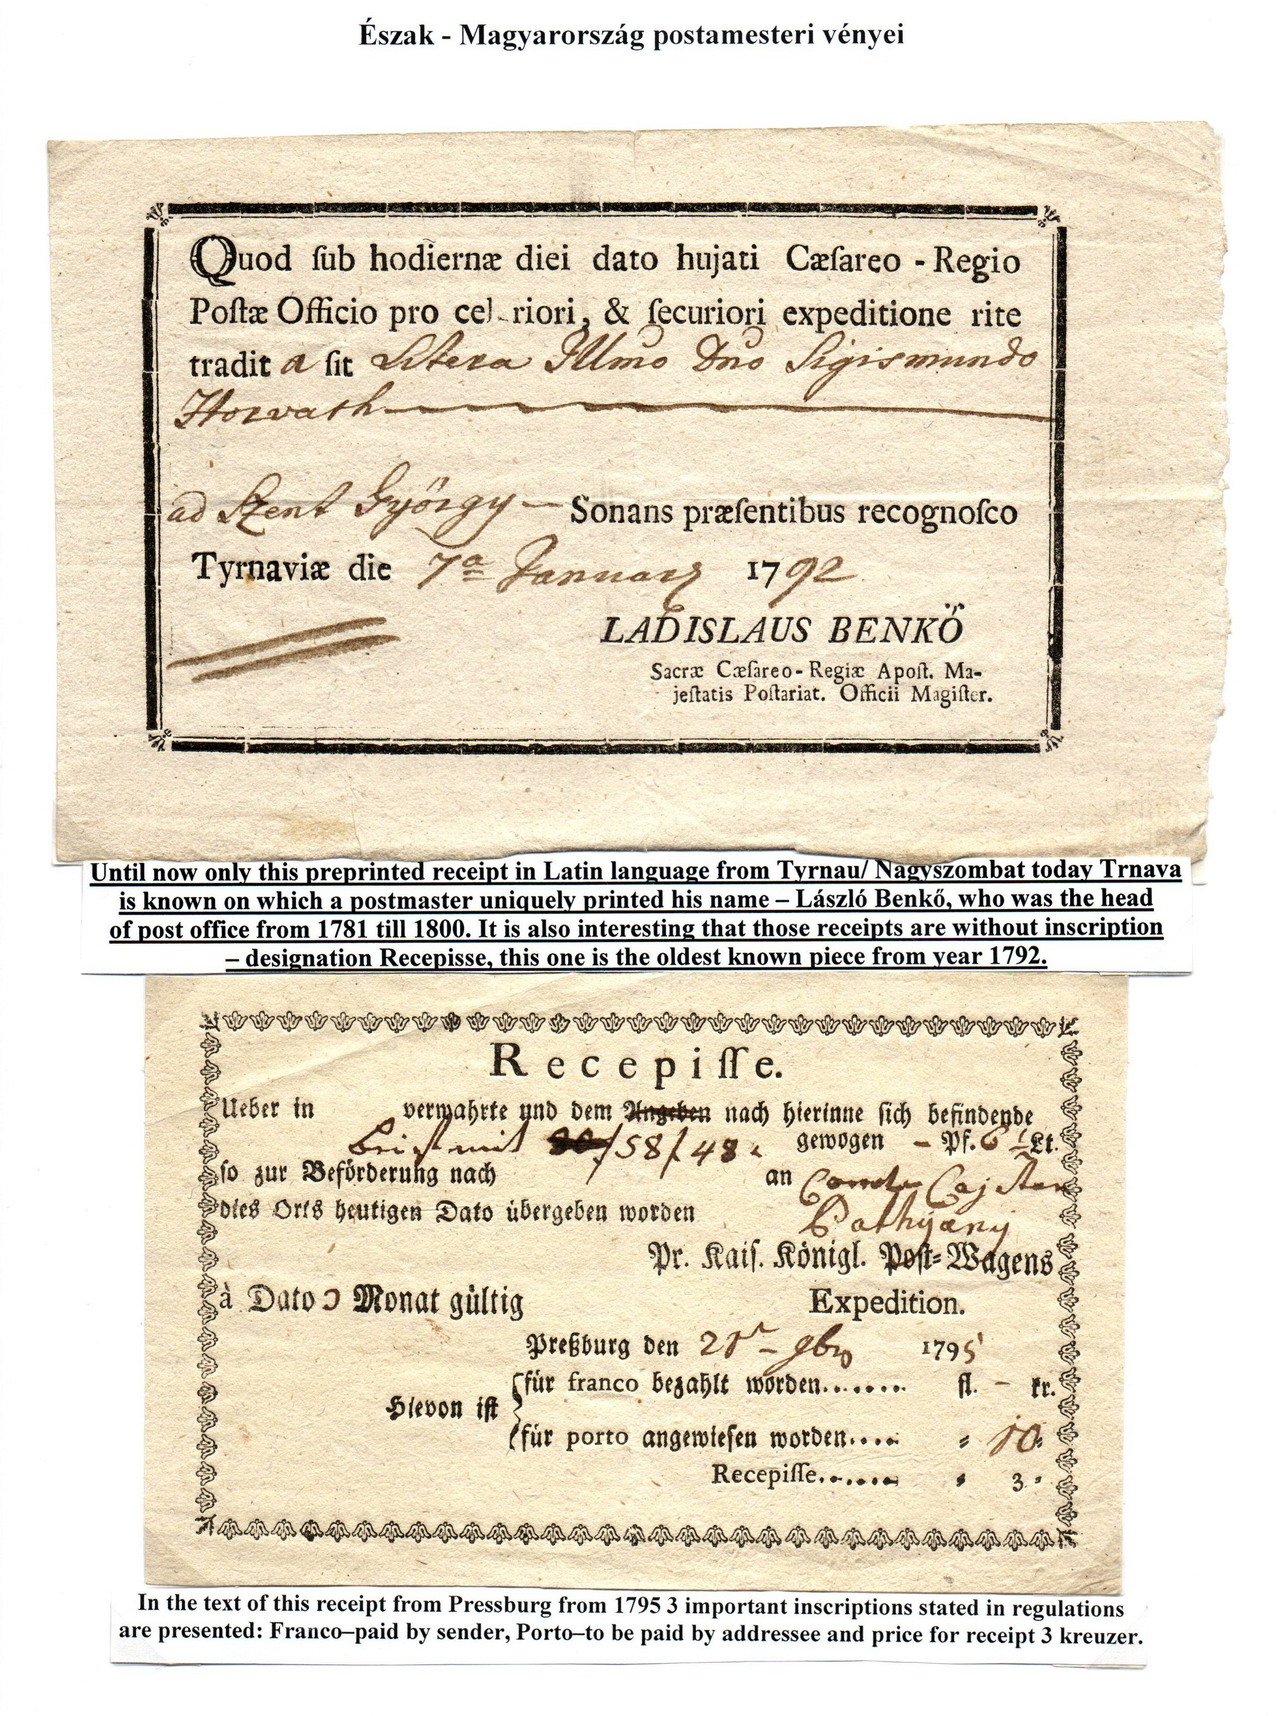 Észak - Magyarország postamesteri vényei
Quod ſub hodiernæ diei dato hujati Cæſareo - Regio
Poſtæ Officio pro cel riori, & ſecuriori expeditione rite
tradit a ſit Litera Illmo Dno Sigismundo
Horvath
ad Szent György Sonans præſentibus recognoſco
Tyrnaviæ die 7a Januarÿ 1792
LADISLAUS BENKŐ
Sacræ Cæſareo-Regiæ Apoſt. Ma-
jeſtatis Poſtariat. Officii Magiſter.
Until now only this preprinted receipt in Latin language from Tyrnau/ Nagyszombat today Trnava
is known on which a postmaster uniquely printed his name – László Benkő, who was the head
of post office from 1781 till 1800. It is also interesting that those receipts are without inscription
– designation Recepisse, this one is the oldest known piece from year 1792.
Recepiſſe.
Ueber in verwahrte und dem Angeben nach hierinne ſich befindende
Brief mit /58/48 gewogen - Pf. 6 Lt.
ſo zur Beförderung nach an Comte Cajetan
dies Orts heutigen Dato übergeben worden Bathyany
Pr. Kaiſ. Königl. Poſt-Wagens
à Dato 3 Monat gültig Expedition.
Preßburg den 9br 1795
für franco bezahlt worden....... fl. - kr.
Hievon iſt
für porto angewieſen worden.... = 10.
Recepiſſe....... 3.
In the text of this receipt from Pressburg from 1795 3 important inscriptions stated in regulations
are presented: Franco–paid by sender, Porto–to be paid by addressee and price for receipt 3 kreuzer.